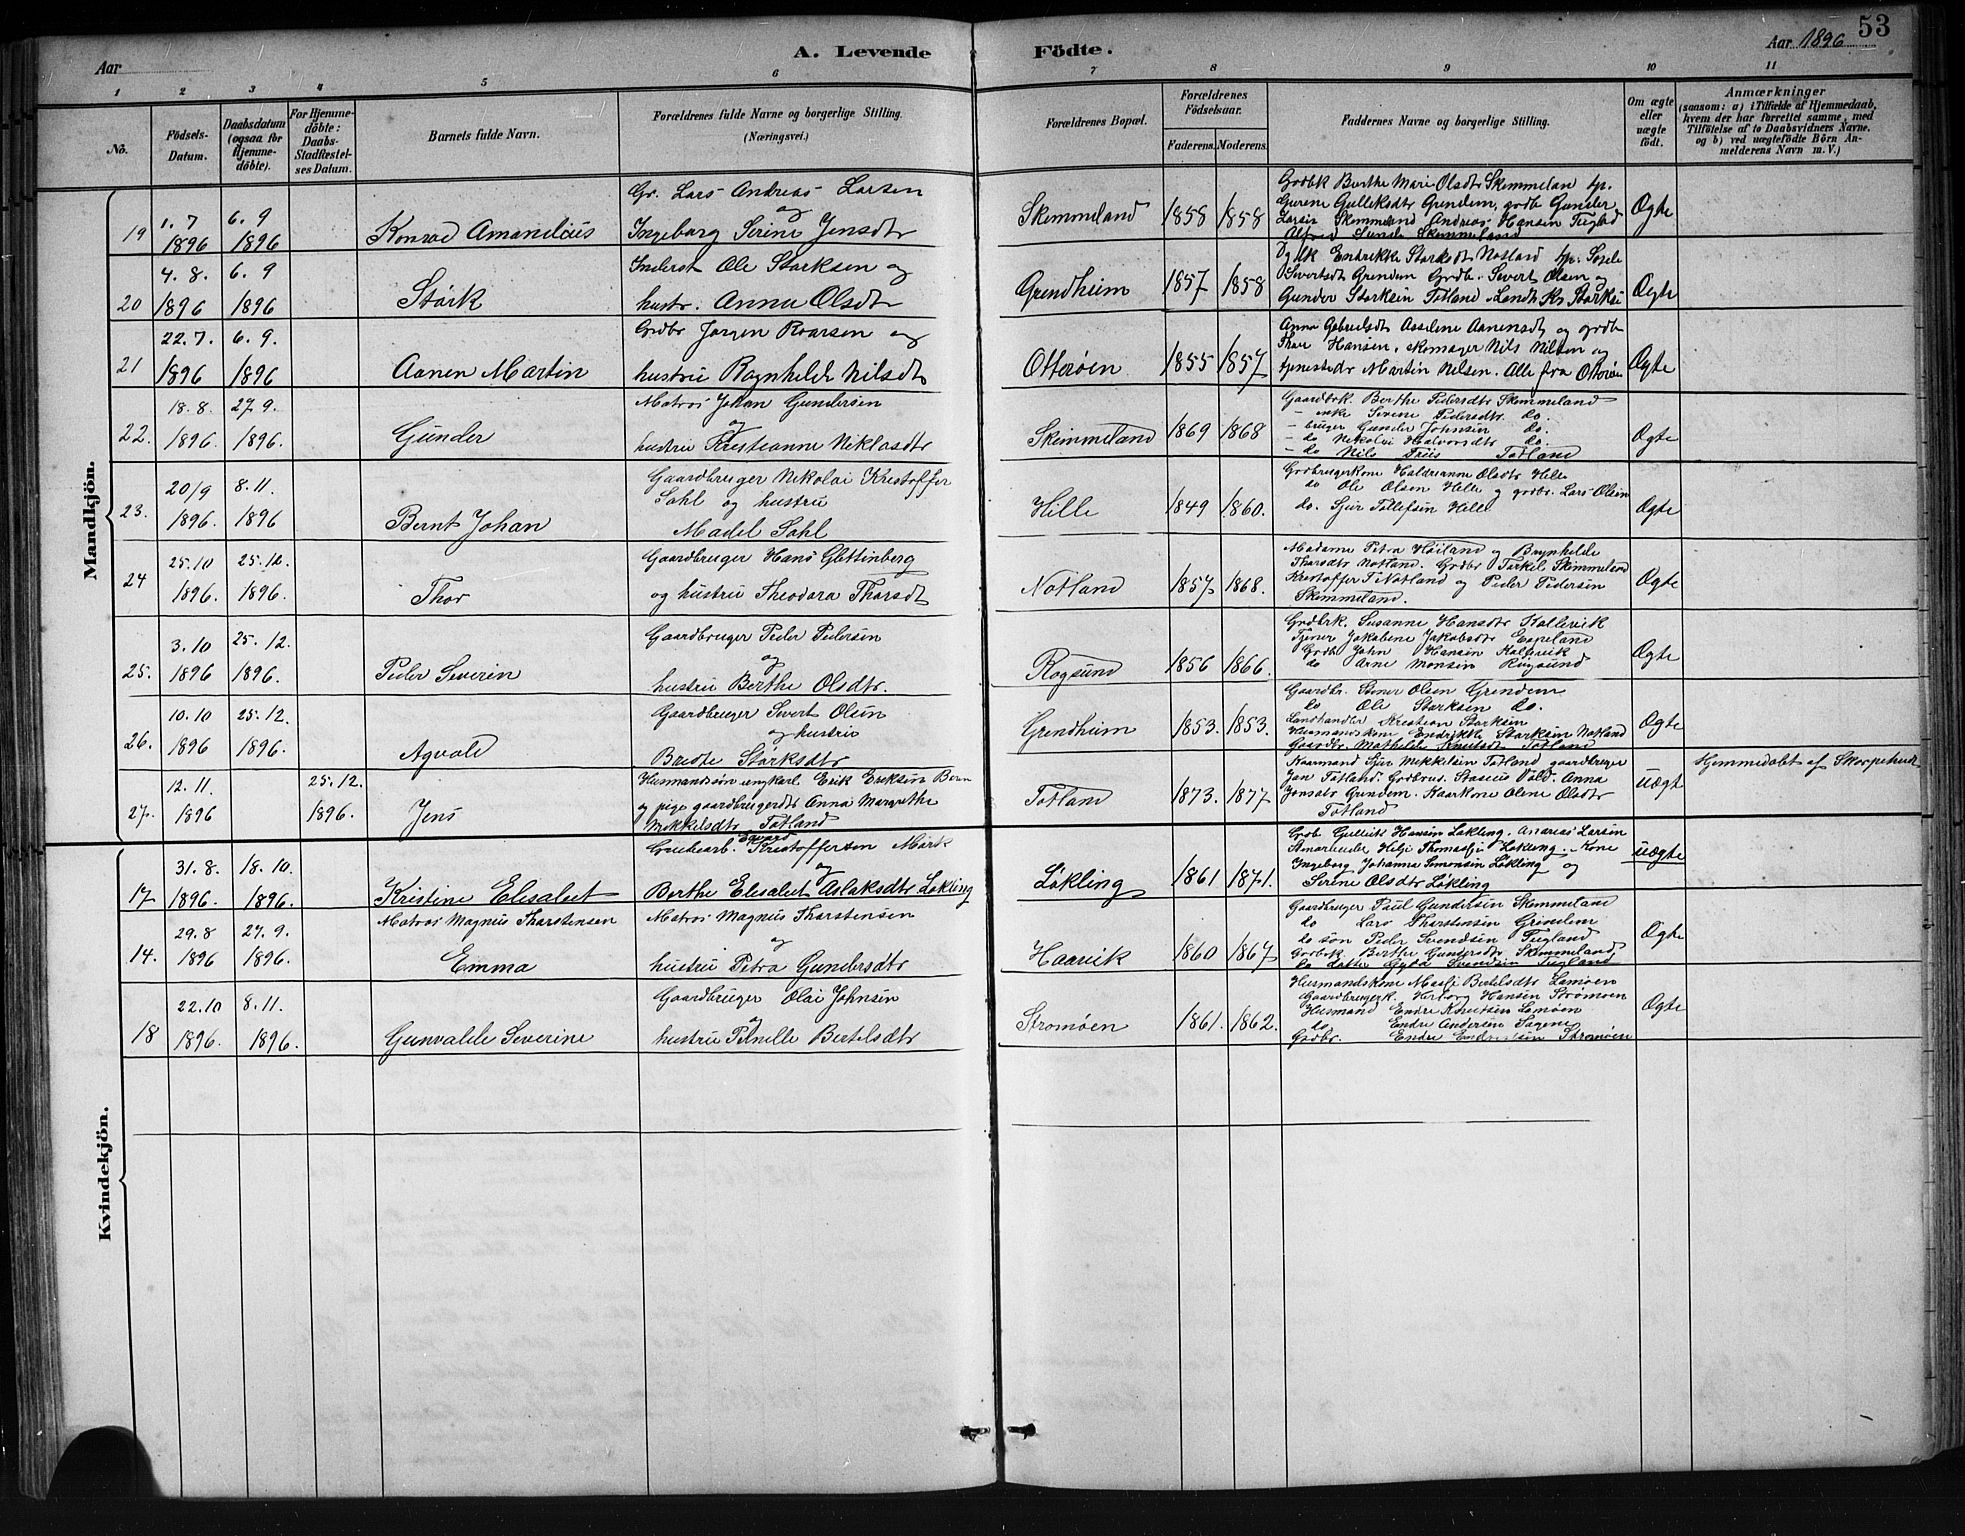 53
Aar
A. Levende
Födte.
Aar 1896
1 2 3 4 5 6 7 8 9 10 11
No.
Födsels-Datum.
Daabsdatum (ogsaa for Hjemme-döbte).
For Hjemme-döbte: Daabs-Stadfæstel-ses Datum.
Barnets fulde Navn.
Forældrenes fulde Navne og borgerlige Stilling.
(Næringsvei.)
Forældrenes Bopæl.
Forældrenes Födselsaar.
Faderens. Moderens.
Faddernes Navne og borgerlige Stilling.
Om ægte eller uægte födt.
Anmærkninger
(saasom: a) i Tilfælde af Hjemmedaab,
hvem der har forrettet samme, med
Tilföielse af to Daabsvidners Navne.
og b) ved uægtefödte Börn An-
melderens Navn m. V.)
Mandkjön.
19
1.7 1896
6.9 1896
Konrad Amandeus
Gr. Lars Andreas Larsen
og
Ingeborg Serine Jensdtr
Skemmeland
1858 1858
Grdbk Berthe Marie Olsdtr Skemmelan hp.
Gurene Gulleksdtr Grendem, grdb Gunder
Larsin Skemmeland Andreas Hansen Tugland
Alfred Lunde Skemmeland
Ægte
20
4.8. 1896
6.9 1896
Stærk
Inderst Ole Starksen og
hustr. Anna Olsdtr
Grendheim
1857 1858
Endrikke Starksdtr Notland hp.
Sivertsdt Grendem Grdb. Severt Olsen og
Gunder Storksin Totland Landh Kr Storksi
Ægte
21
22.7. 1896
6.9. 1896
Aanen Martin
Grdbr Jørgen Roarsen og
hustru Ragnhilde Nilsdtr
Otterøen
1855 1857
Anna Gabrielsdt Asseline Aanensdt og grdb
Thor Hansen, skomager Nils Nilsen og
tjenestedr Martin Nilsen. Alle fra Otterøen
Ægte
22.
18.8. 1896.
27.9. 1896.
Gunder
Matros Johan Gundersen
og
hustru Kristianne Niklasdtr
Skimmeland
1869 1868
Gaardbrk. Berthe Pedersdtr Skemmeland
- enke Serene Pedersdtr. do.
- bruger Gunder Johnsin do.
- do Nikolai Halvorsdtr do.
- do Nils Friis Totland
Ægte
23.
20/9 1896.
8.11. 1896
Bernt Johan
Gaardbruger Nikolai Kristoffer
Sahl og hustru
Madel Sahl
Hille
1849 1860.
Grdbrugerkone Haldrianne Olsdtr Hille
do Ole Olsen Hille og grdbr. Lars Olsen
do. Sjur Tollefsen Hille
Ægte
24
25.10 1896.
25.12. 1896.
Thor
Gaardbruger Hans Glettinberg
og hustru Theodora Tharsdt
Notland
1857 1868.
Madame Petra Høiland og Brynhilde
Tharsdtr Notland. Grdbr Terkel Skimmeland
Kristoffer T. Notland og Peder Pedersen
Skemmeland.
Ægte
25.
3.10 1896
25.12. 1896.
Peder Severin
Gaardbruger Peder Pedersen
og
hustru Berthe Olsdtr.
Rogsund
1856 1866.
Grdbrk. Susanne Hansdtr Kallevik
Tjener Jakobine Jakobsdtr Espeland
Grdb John Hansen Kalevik
do Arne Monsen Rugsund
Ægte
26.
10.10 1896
25.12. 1896.
Agvald
Gaardbruger Severt Olsen
og hustru
Bredte Størksdtr
Grendheim
1853. 1853.
Gaardbr. Stener Olsen Grendem
do Ole Starksen do.
Landhandler Kristian Starksin
Husmandskone Endrikke Starksin Notland
Gaardbr. Mathilde Knutsdt Totland
Ægte
27.
12.11. 1896
25.12. 1896.
Jens
Husmandssøn ungkarl Erik Eriksen Bern
og pige gaardbrugerdtr Anna Margrethe
Mikkelsdtr Totland
Totland
1873. 1877
Kaarmand Sjur Mikkelsin Totland gaardbruger
Jan Totland. Grdbrus. Stasius Vold. Anna
Jonsdtr Grendem. Kaarkone Olene Olsdtr
Totland
uægt
Hjemmedøbt af
Kvindekjön.
17
31.8. 1896.
18.10. 1896.
Kristine Elesabet
Grubearb. Edvard Kristoffersen Mørk
og
Berthe Elesabet Aslaksdtr Løkling
Løkling
1861 1871.
Grdb. Gullich Hansen Løkling. Andreas Larsen
Helje Thomasen Løkling. Kone
Ingeborg Johanna Simonsen Løkling og
Serine Olsdtr Løkling
uægte
14.
29.8 1896
27.9. 1896.
Matros Magnus Tharstensen
Emma
Matros Magnus Tharstensen
og
hustru Petra Gundersdtr
Haarvik
1860 1867
Gaardbruger Paul Gundersen Skemmeland
do Lars Tharstensen Grindem
do søn Peder Svendsen Tugland
Gaardbrk Berthe Gundersdtr Skemmeland
do datter Gyda Svendsen Tugland
Ægte
18
22.10 1896.
8.11. 1896.
Gunvalde Severine
Gaardbruger Olai Johnsin
og
hustru Pernille Bertelsdtr
Stromøen
1861. 1862.
Husmandskone Masli Bertelsdtr Lamøen
Gaardbrugerk. Herborg Hansen Strømøen
Husmand Endre Knudsen Lamøen
do Endre Andersen Sagene
Grdbr. Endre Endresen Stromøen
Ægte